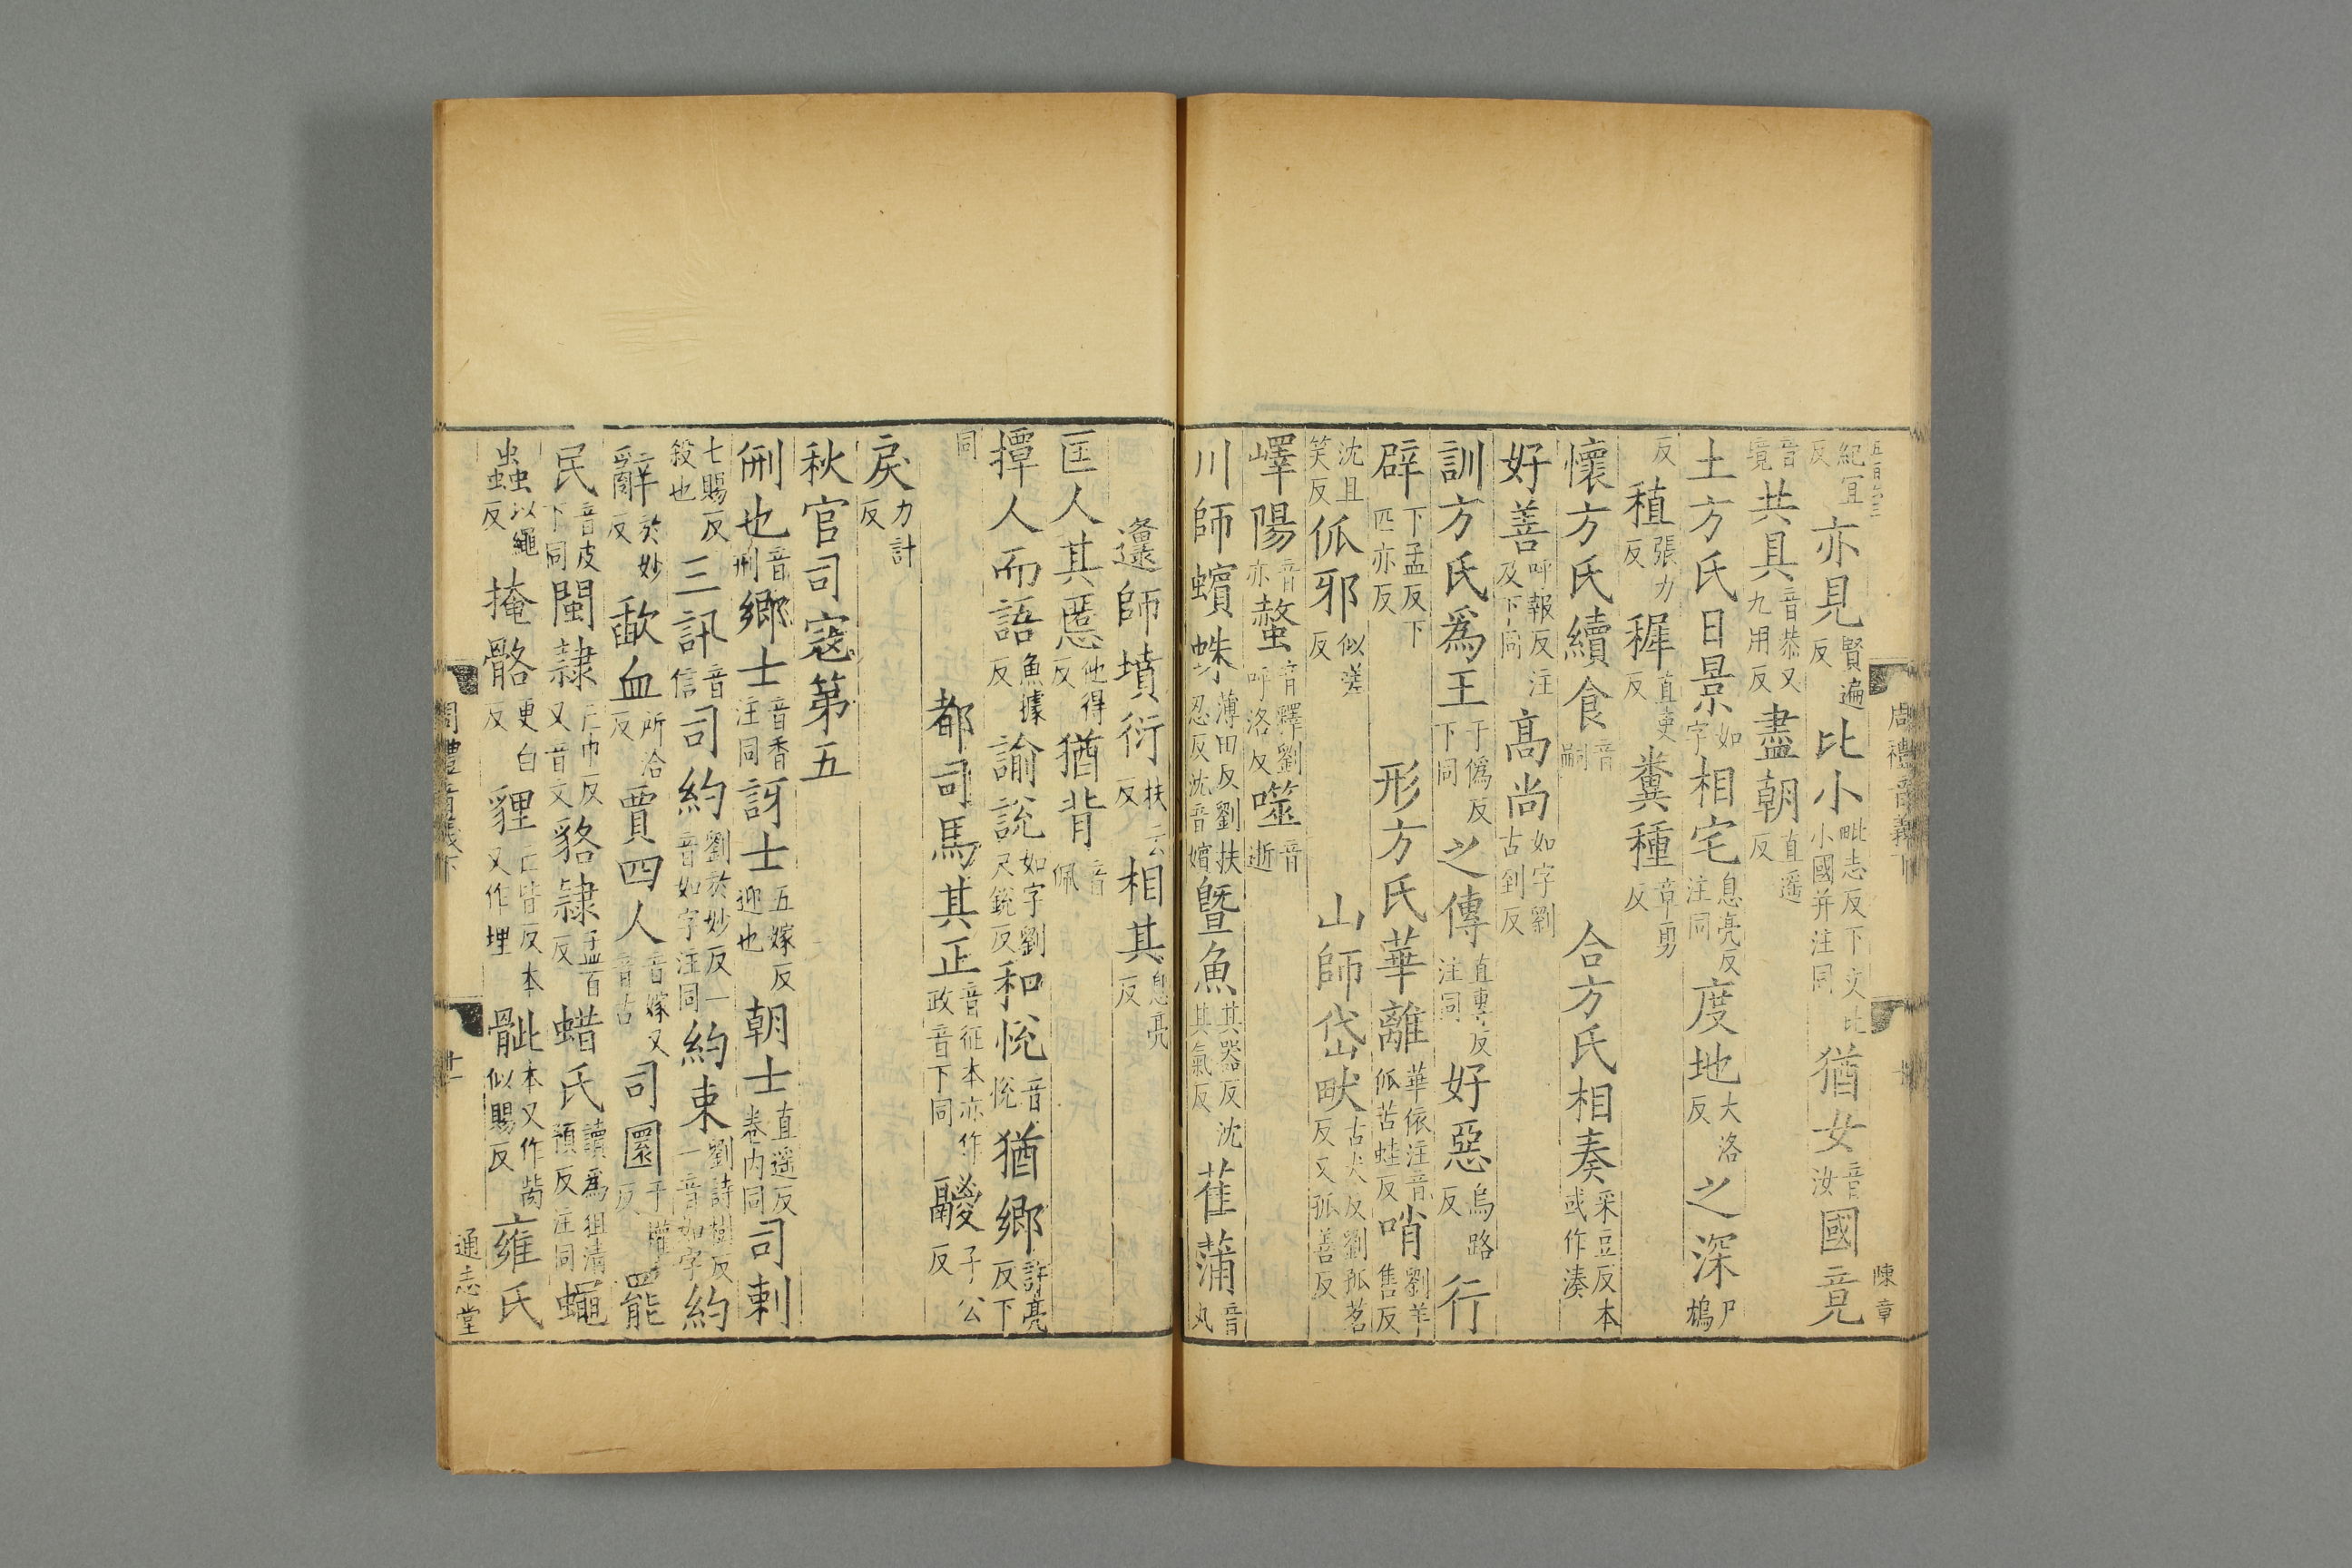 紀宜反亦見賢遍反比小毗志反下文比小國并注同猶女音汝國竟
音境共具音恭又九用反盡朝直遥反
土方氏日景如字相宅息亮反注同度地大洛反之深尸鴆
反稙張力反稺直吏反糞種章勇反
懷方氏續食音嗣合方氏相奏采豆反本或作湊
好善呼報反注及下同高尚如字劉古到反
訓方氏爲王于僞反下同之傳直專反注同好惡烏路反行
辟下孟反下匹亦反形方氏華離華依注音㼌苦蛙反哨劉羊售反
沈且笑反㼌邪似嗟反山師岱畎古犬反劉孤茗反又孤善反
嶧陽音亦螫音釋劉呼洛反噬音逝
川師蠙蛛薄田反劉扶忍反沈音嬪曁魚其器反沈其氣反萑蒲音丸
邍師墳衍扶云反相其息亮反
匡人其慝他得反猶背音佩
撢人而語魚據反諭說如字劉尺銳反和恱音悅猶鄉許亮反下
同都司馬其正音征本亦作政音下同鬷子公反
戾力計反
秋官司寇第五
侀也音刑鄉士音香注同訝士五嫁反迎也朝士直遥反卷内同司刺
七賜反殺也三訊音信司約劉於妙反一音如字注同約束劉詩樹反一音如字約
辭於妙反歃血所洽反賈四人音嫁又音古司圜于權反罷
民音皮下同閩隷亡巾反又音文貉隷孟百反蜡氏讀爲狙清預反注同蠅
蟲以繩反掩骼更白反貍亡皆反本又作埋骴本又作胔似賜反雍氏
周禮音義下
陳章
周禮音義下
通志堂